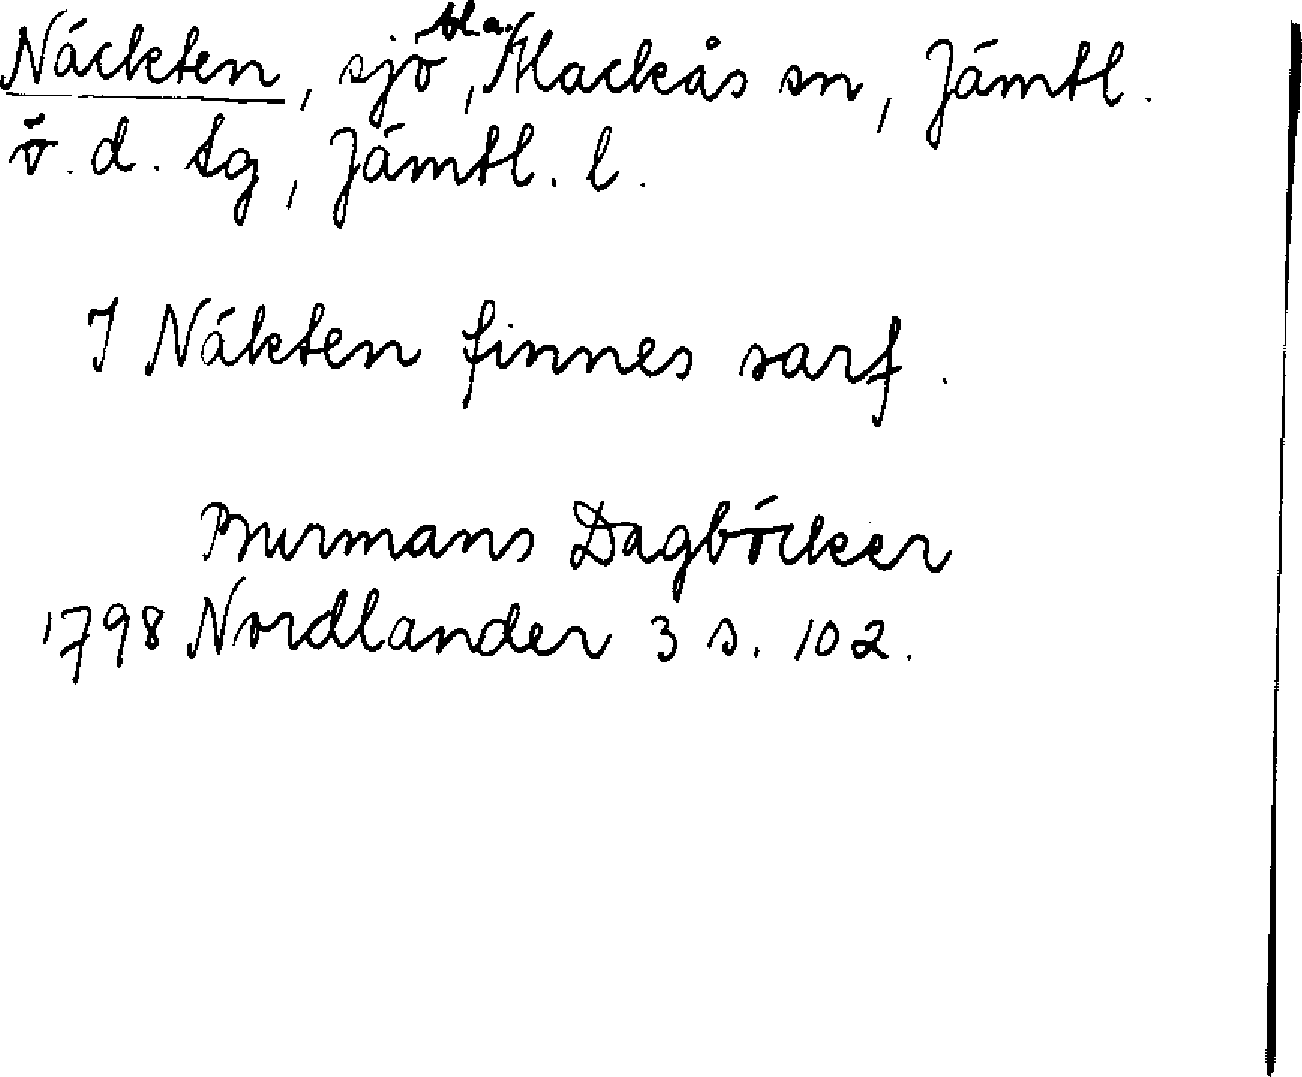 Näckten, sjö, bl.a. Hackås sn, Jämtl.
ö. d. tg, Jämtl. l.
I Näkten finnes sarf.
Burmans Dagböcker
1798 Nordlander 3 s. 102.